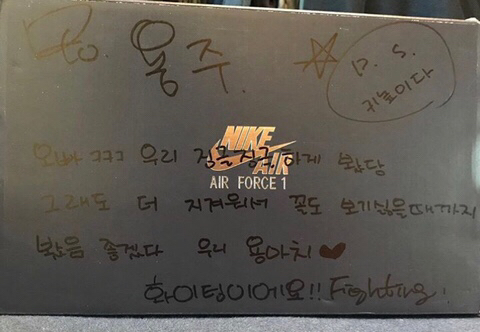 To. 용주.
P.S.
키높이다
NIKE
AIR
AIR FORCE 1
오빠 ㅋㅋㅋ 우리 징글징글하게 봤당
그래도 더 지겨워서 꼴도 보기싫을때까지
봤음 좋겠다 우리 용아치 ♥
화이팅이에요!! Fighting.